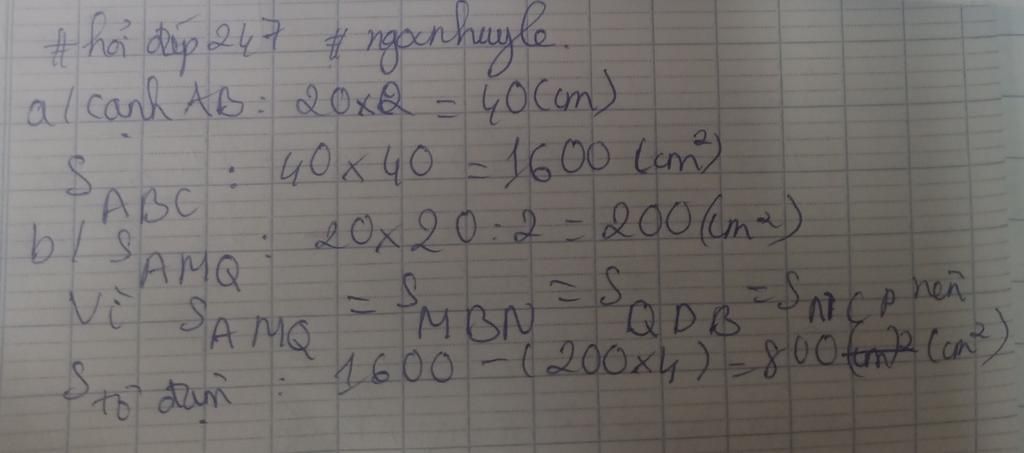 # hỏi đáp 247 # ngocnhuyle.
a/ Cạnh AB: 20x2 = 40(cm)
S ABC : 40x40 = 1600 (cm²)
b/ S AMQ : 20x20:2 = 200(cm²)
Vì S AMQ = S MBN = S QDB = S NCP nên
S tô đậm : 1600 - (200x4) = 800 (cm)² (cm²)